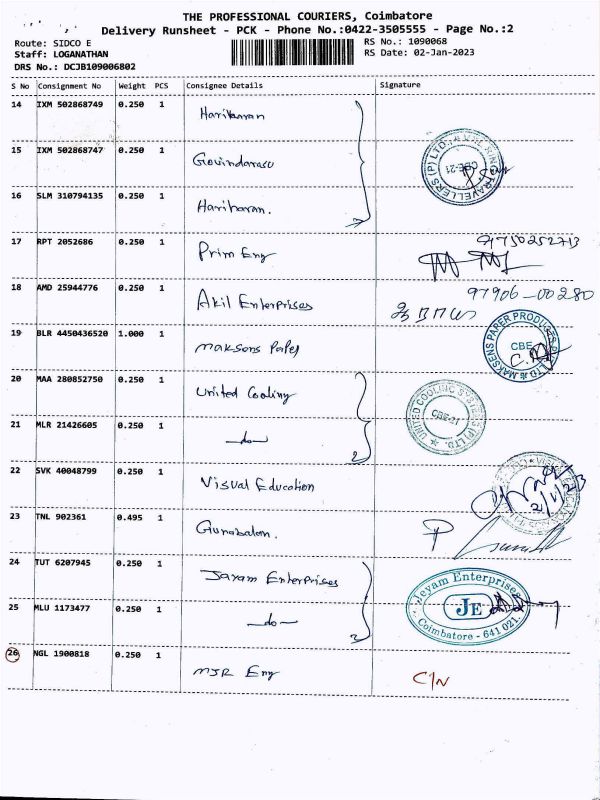 THE PROFESSIONAL COURIERS, Coimbatore
Delivery Runsheet - PCK - Phone No.:0422-3505555 - Page No.:2
Route: SIDCO E
RS No.: 1090068
Staff: LOGANATHAN
RS Date: 02-Jan-2023
DRS No.: DCJB109006802
S No Consignment No Weight PCS Consignee Details Signature
14 IXM 502868749 0.250 1 Hariharan
15 IXM 502868747 0.250 1 Govindarasu
TRAVELLERS (P) LTD.
CBE-21
16 SLM 310794135 0.250 1 Hariharan.
17 RPT 2052686 0.250 1 Prim Eng
9750252713
18 AMD 25944776 0.250 1 Akil Enterprises
97906-00280
19 BLR 4450436520 1.000 1 Maksens Paper
MAKSENS PAPER PRODUCTS P LTD
CBE
20 MAA 280852750 0.250 1 United Cooling
21 MLR 21426605 0.250 1 -do-
2
UNITED COOLING SYSTEMS (P) LTD.
CBE-21
22 SVK 40048799 0.250 1 Visual Education
23 TNL 902361 0.495 1 Gunabalan.
24 TUT 6207945 0.250 1 Jayam Enterprises
25 MLU 1173477 0.250 1 -do-
2
Jeyam Enterprises
JE
Coimbatore - 641 021.
26 NGL 1900818 0.250 1 MJR Eng C/N